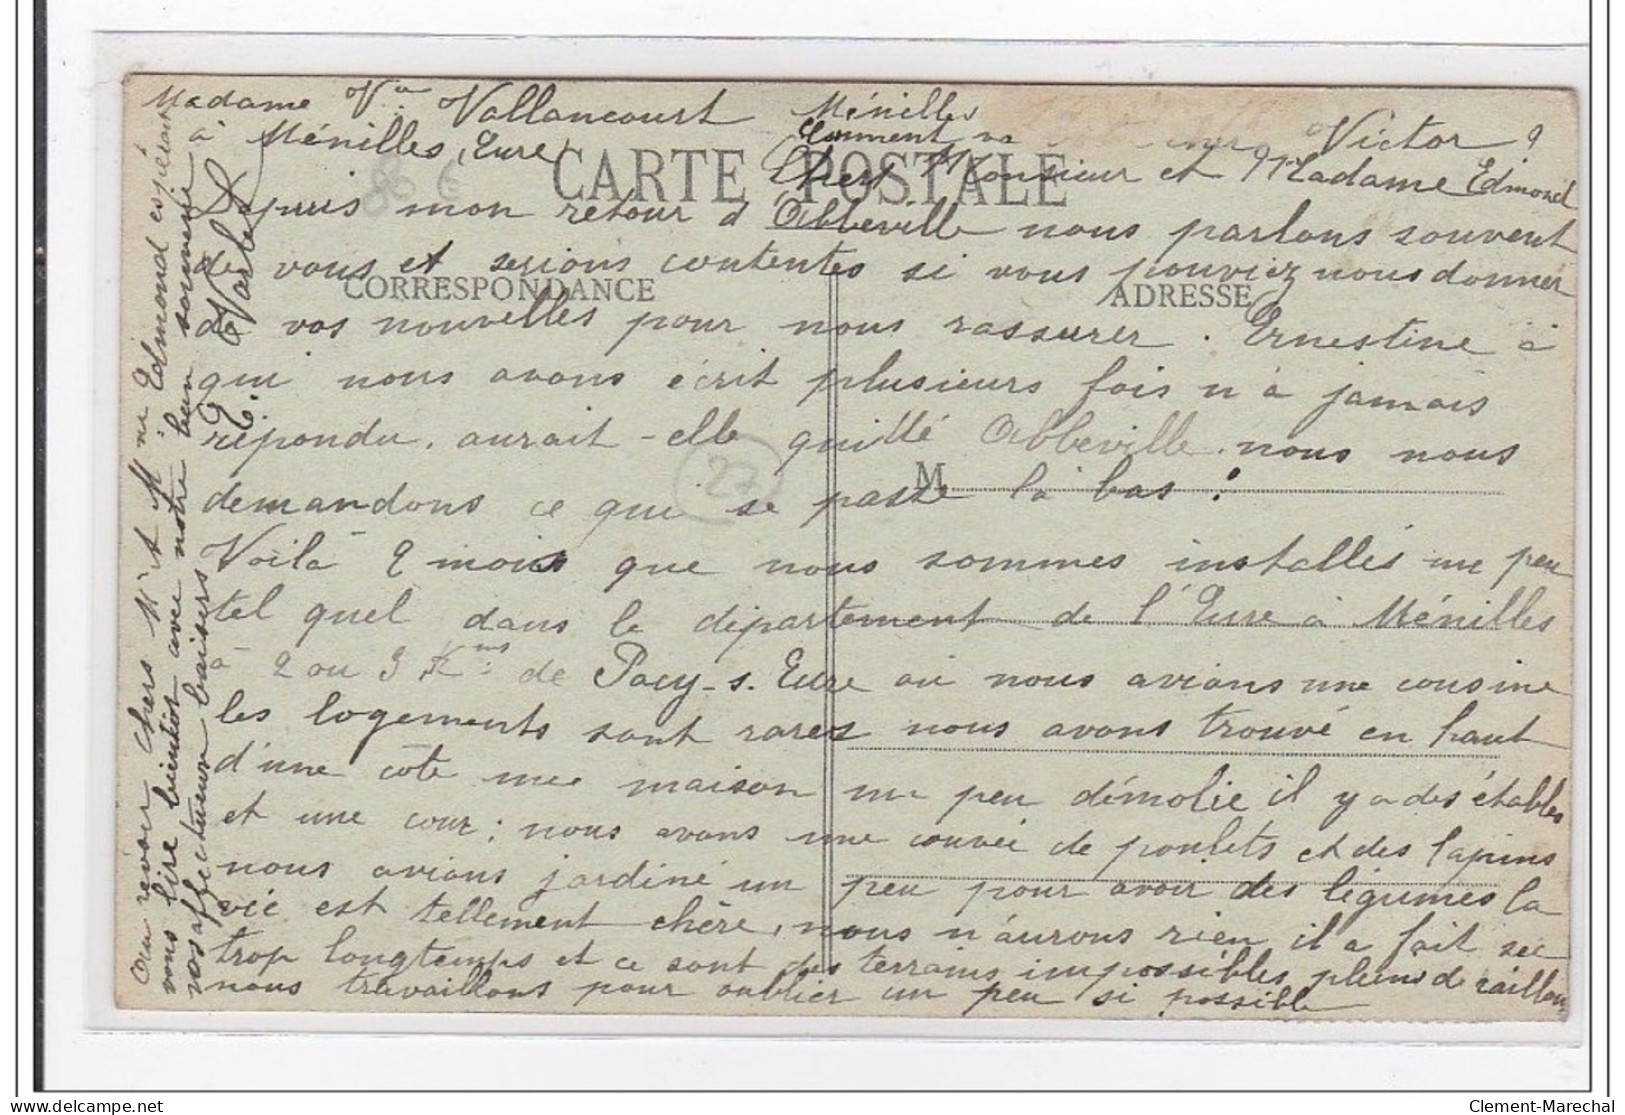 Madame Vve Vallancourt
à Ménilles, Eure
Ménilles
Comment va Victor ?
CARTE POSTALE
Chers Monsieur et Madame Edmond
Depuis mon retour d'Abbeville nous parlons souvent
de vous et serions contentes si vous pouviez nous donner
CORRESPONDANCE
ADRESSE
de vos nouvelles pour nous rassurer. Ernestine à
qui nous avons écrit plusieurs fois n'a jamais
répondu. aurait-elle quitté Abbeville. nous nous
27
M
demandons ce qui se passe là bas !
Voilà 2 mois que nous sommes installés un peu
tel quel dans le département de l'Eure à Ménilles
à 2 ou 3 Kms de Pacy-s. Eure où nous avions une cousine
les logements sont rares nous avons trouvé en haut
d'une côte une maison un peu démolie il y a des étables
et une cour ; nous avons une couvée de poulets et des lapins
nous avions jardiné un peu pour avoir des légumes la
vie est tellement chère, nous n'aurons rien il a fait sec
trop longtemps et ce sont des terrains impossibles pleins de caillou
nous travaillons pour oublier un peu si possible
Au revoir chers Mr et Mme Edmond espérant
vous lire bientôt avec notre bon souvenir
nos affectueux baisers
Clement-Marechal
www.delcampe.net